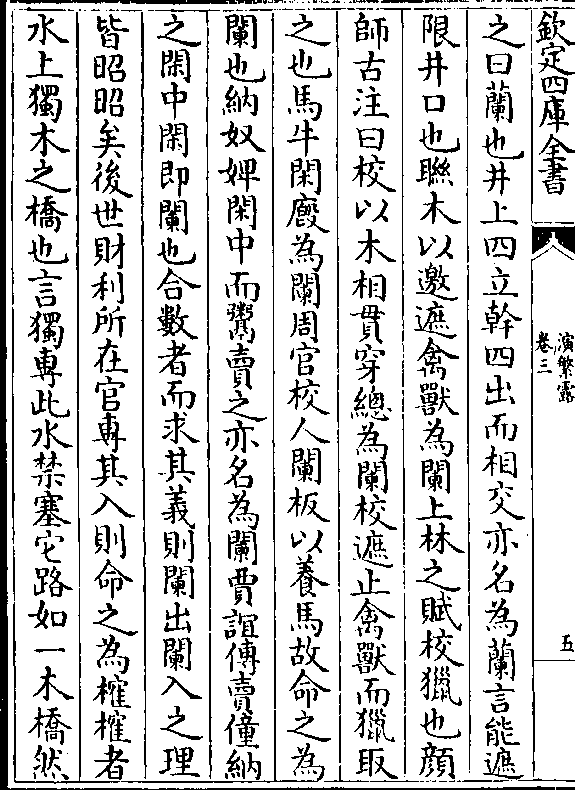 欽定四庫全書
演繁露
卷三
五
之曰蘭也井上四立幹四出而相交亦名為蘭言能遮
限井口也聯木以邀遮禽獸為闌上林之賦校獵也顔
師古注曰校以木相貫穿總為闌校遮止禽獸而獵取
之也馬牛閑廏為闌周官校人闌板以養馬故命之為
闌也納奴婢閑中而鬻賣之亦名為闌賈誼傳賣僮納
之閑中閑即闌也合數者而求其義則闌出闌入之理
皆昭昭矣後世財利所在官専其入則命之為榷榷者
水上獨木之橋也言獨専此水禁塞它路如一木橋然